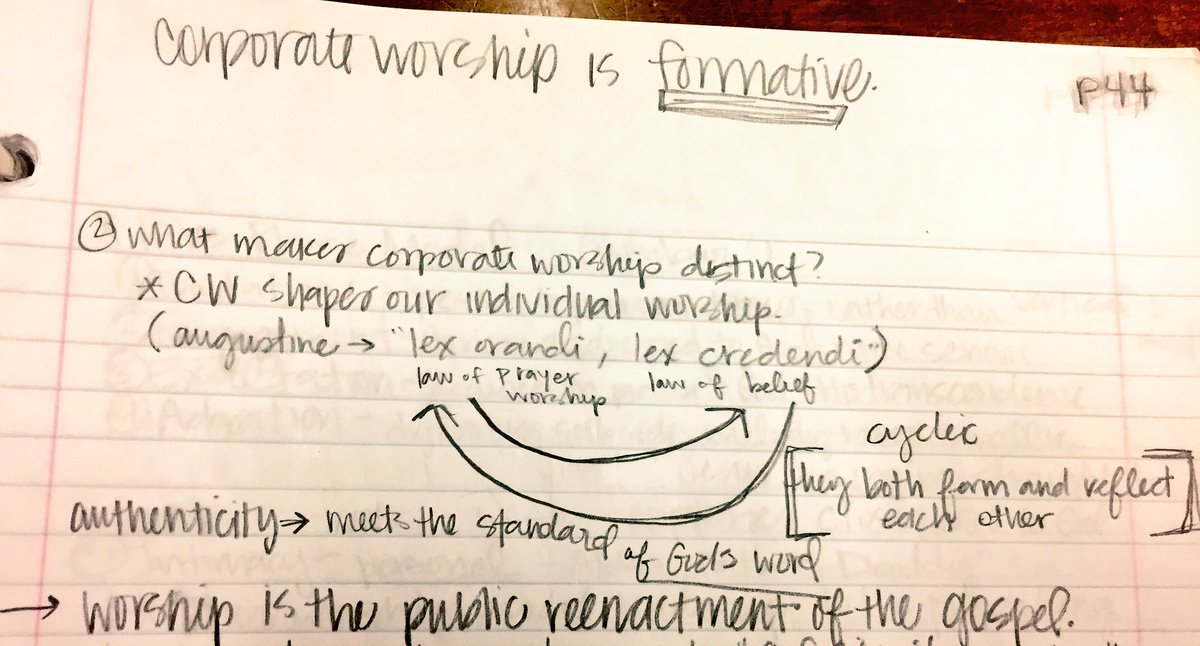 corporate worship is formative.
P44
② what makes corporate worship distinct?
* CW shapes our individual worship.
(augustine → "lex orandi, lex credendi")
law of prayer law of belief
worship
cyclic
[they both form and reflect
each other]
authenticity ⇒ meets the standard of God's word
→ worship is the public reenactment of the gospel.